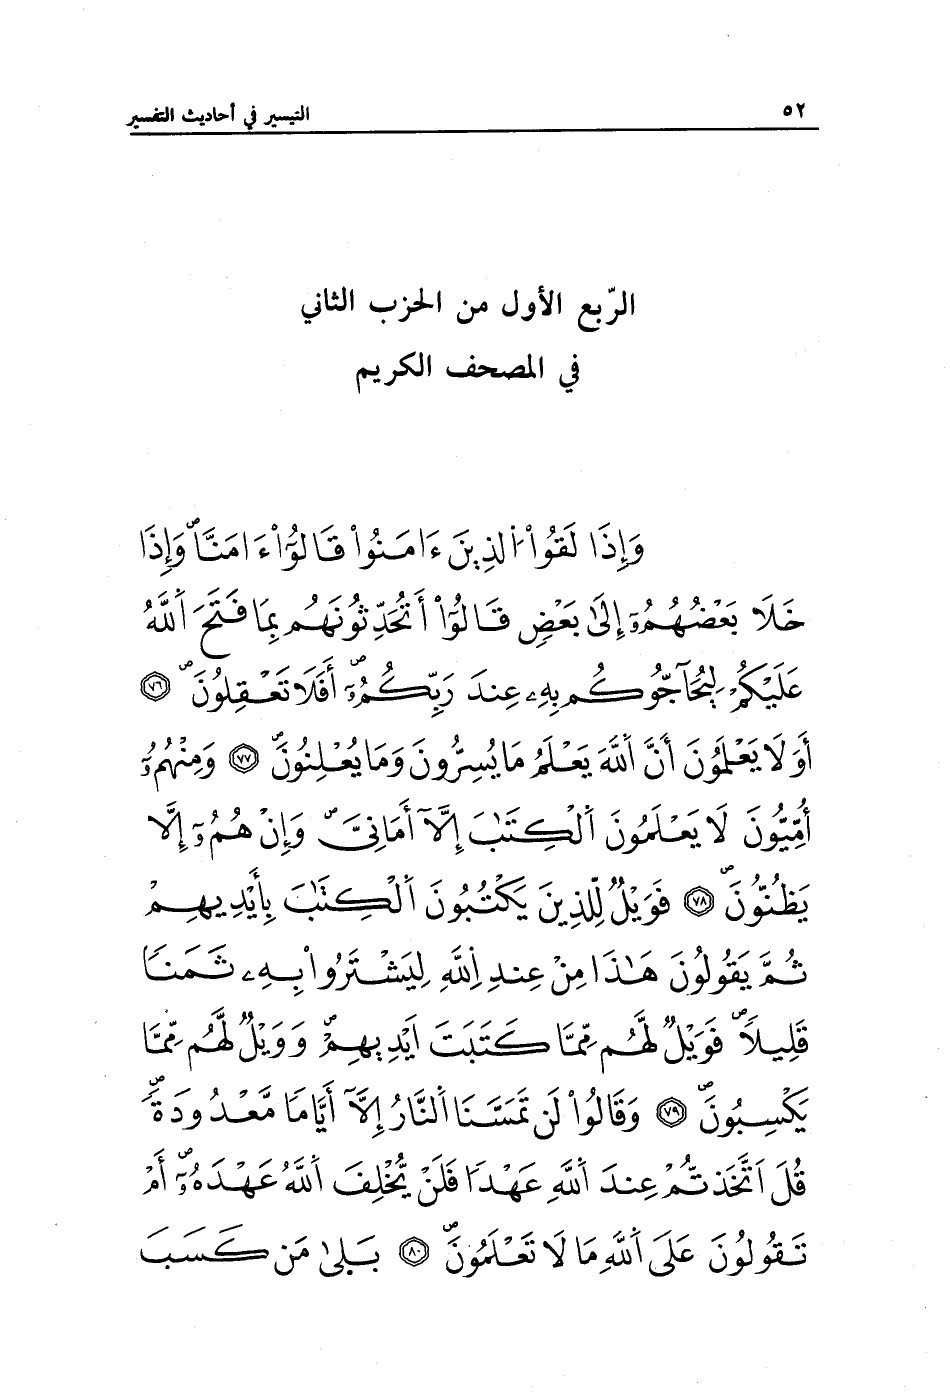 ٥٢
التيسير في أحاديث التفسير
الرّبع الأول من الحزب الثاني
في المصحف الكريم
وَإِذَا لَقُواْ اُلذِينَ ءَامَنُواْ قَالُوٓاْ ءَامَنَّاۖ وَإِذَا
خَلَا بَعْضُهُمُۥٓ إِلَىٰ بَعْضٖ قَالُوٓاْ أَتُحَدِّثُونَهُم بِمَا فَتَحَ اَللَّهُ
عَلَيْكُمْ لِيُحَآجُّوكُم بِهِۦ عِندَ رَبِّكُمُۥٓۖ أَفَلَا تَعْقِلُونَۖ ۝٧٦
أَوَلَا يَعْلَمُونَ أَنَّ اَللَّهَ يَعْلَمُ مَا يُسِرُّونَ وَمَا يُعْلِنُونَۖ ۝٧٧ وَمِنْهُمُۥٓ
أُمِّيُّونَ لَا يَعْلَمُونَ اَلْكِتَٰبَ إِلَّآ أَمَانِيَّۖ وَإِنْ هُمُۥٓ إِلَّا
يَظُنُّونَۖ ۝٧٨ فَوَيْلٞ لِّلذِينَ يَكْتُبُونَ اَلْكِتَٰبَ بِأَيْدِيهِمْ
ثُمَّ يَقُولُونَ هَٰذَا مِنْ عِندِ اِللَّهِ لِيَشْتَرُواْ بِهِۦ ثَمَنٗا
قَلِيلٗاۖ فَوَيْلٞ لَّهُم مِّمَّا كَتَبَتَ اَيْدِيهِمْۖ وَوَيْلٞ لَّهُم مِّمَّا
يَكْسِبُونَۖ ۝٧٩ وَقَالُواْ لَن تَمَسَّنَا اَلنَّارُ إِلَّآ أَيَّامٗا مَّعْدُودَةٗۖ
قُلَ اَتَّخَذتُّمْ عِندَ اَللَّهِ عَهْدٗا فَلَنْ يُّخْلِفَ اَللَّهُ عَهْدَهُۥٓۖ أَمْ
تَقُولُونَ عَلَى اَللَّهِ مَا لَا تَعْلَمُونَۖ ۝٨٠ بَلَىٰ مَن كَسَبَ